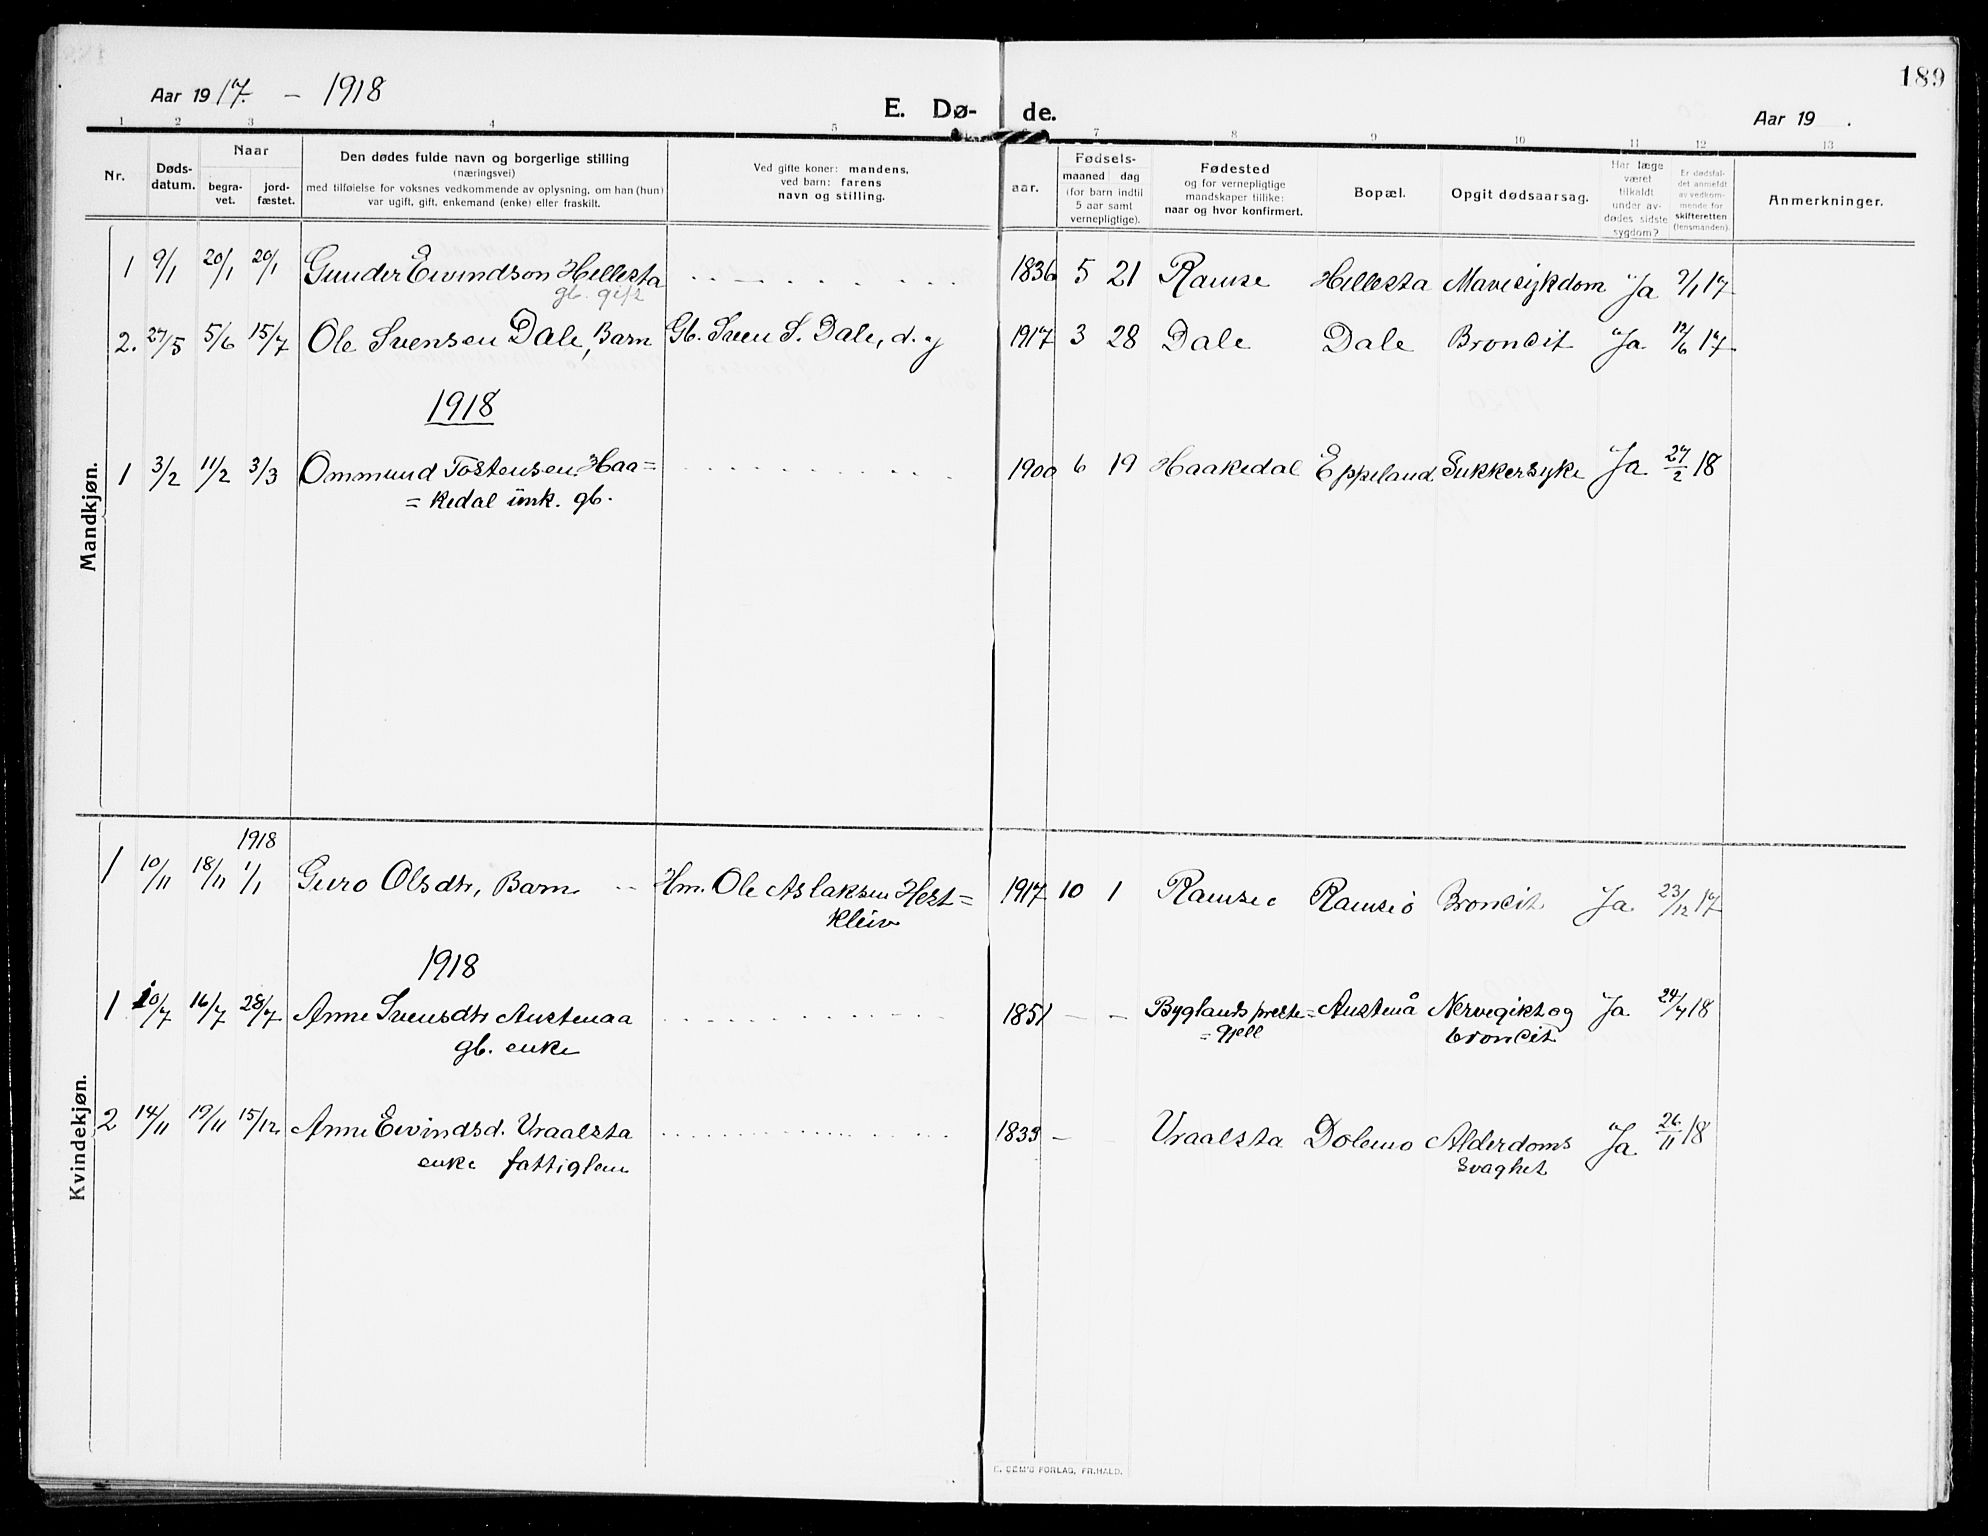 189
Aar 1917. – 1918
E. Dø- de.
Aar 19 .
1 2 3 4 5 7 8 9 10 11 12 13
Nr.
Døds-
datum.
Naar
begra-
vet.
jord-
fæstet.
Den dødes fulde navn og borgerlige stilling
(næringsvei)
med tilføielse for voksnes vedkommende av oplysning, om han (hun)
var ugift, gift, enkemand (enke) eller fraskilt.
Ved gifte koner: mandens,
ved barn: farens
navn og stilling.
aar.
Fødsels-
maaned dag
(for barn indtil
5 aar samt
vernepligtige).
Fødested
og for vernepligtige
mandskaper tillike:
naar og hvor konfirmert.
Bopæl.
Opgit dødsaarsag.
Har læge
været
tilkaldt
under av-
dødes sidste
sygdom?
Er dødsfal-
det anmeldt
av vedkom-
mende for
skifteretten
(lensmanden).
Anmerkninger.
Mandkjøn.
1 9/1 20/1 20/1 Gunder Eivindson Hellesta 1836 5 21 Ramse Hillesta Mavesykdom Ja 9/1 17
gb. gift
2. 27/5 5/6 15/7 Ole Svensen Dale, Barn Gb. Sven S. Dale, d. y 1917 3 28 Dale Dale Broncit Ja 12/6 17
1918
1 3/2 11/2 3/3 Ommund Tostensen Haa= 1900 6 19 Haakedal Eppeland Sukkersyke Ja 27/2 18
= kedal unk. gb.
Kvindekjøn.
1918
1 10/11 18/11 1/1 Guro Olsdtr, Barn Hm. Ole Aslaksen Hest= 1917 10 1 Ramse Ramse Broncit Ja 23/12 17
kleiv
1918
1 10/7 16/7 28/7 Anne Svensdtr Austenaa 1851 – – Byglands preste= Austenå Nervegikt og Ja 24/7 18
gb. enke = gjell broncit
2 14/11 19/11 15/12 Anne Eivindsd. Uraalsta 1833 – Uraalsta Dolemo Alderdoms Ja 26/11 18
enke fattiglem svaghet
E. SEM'S FORLAG, FR.HALD.